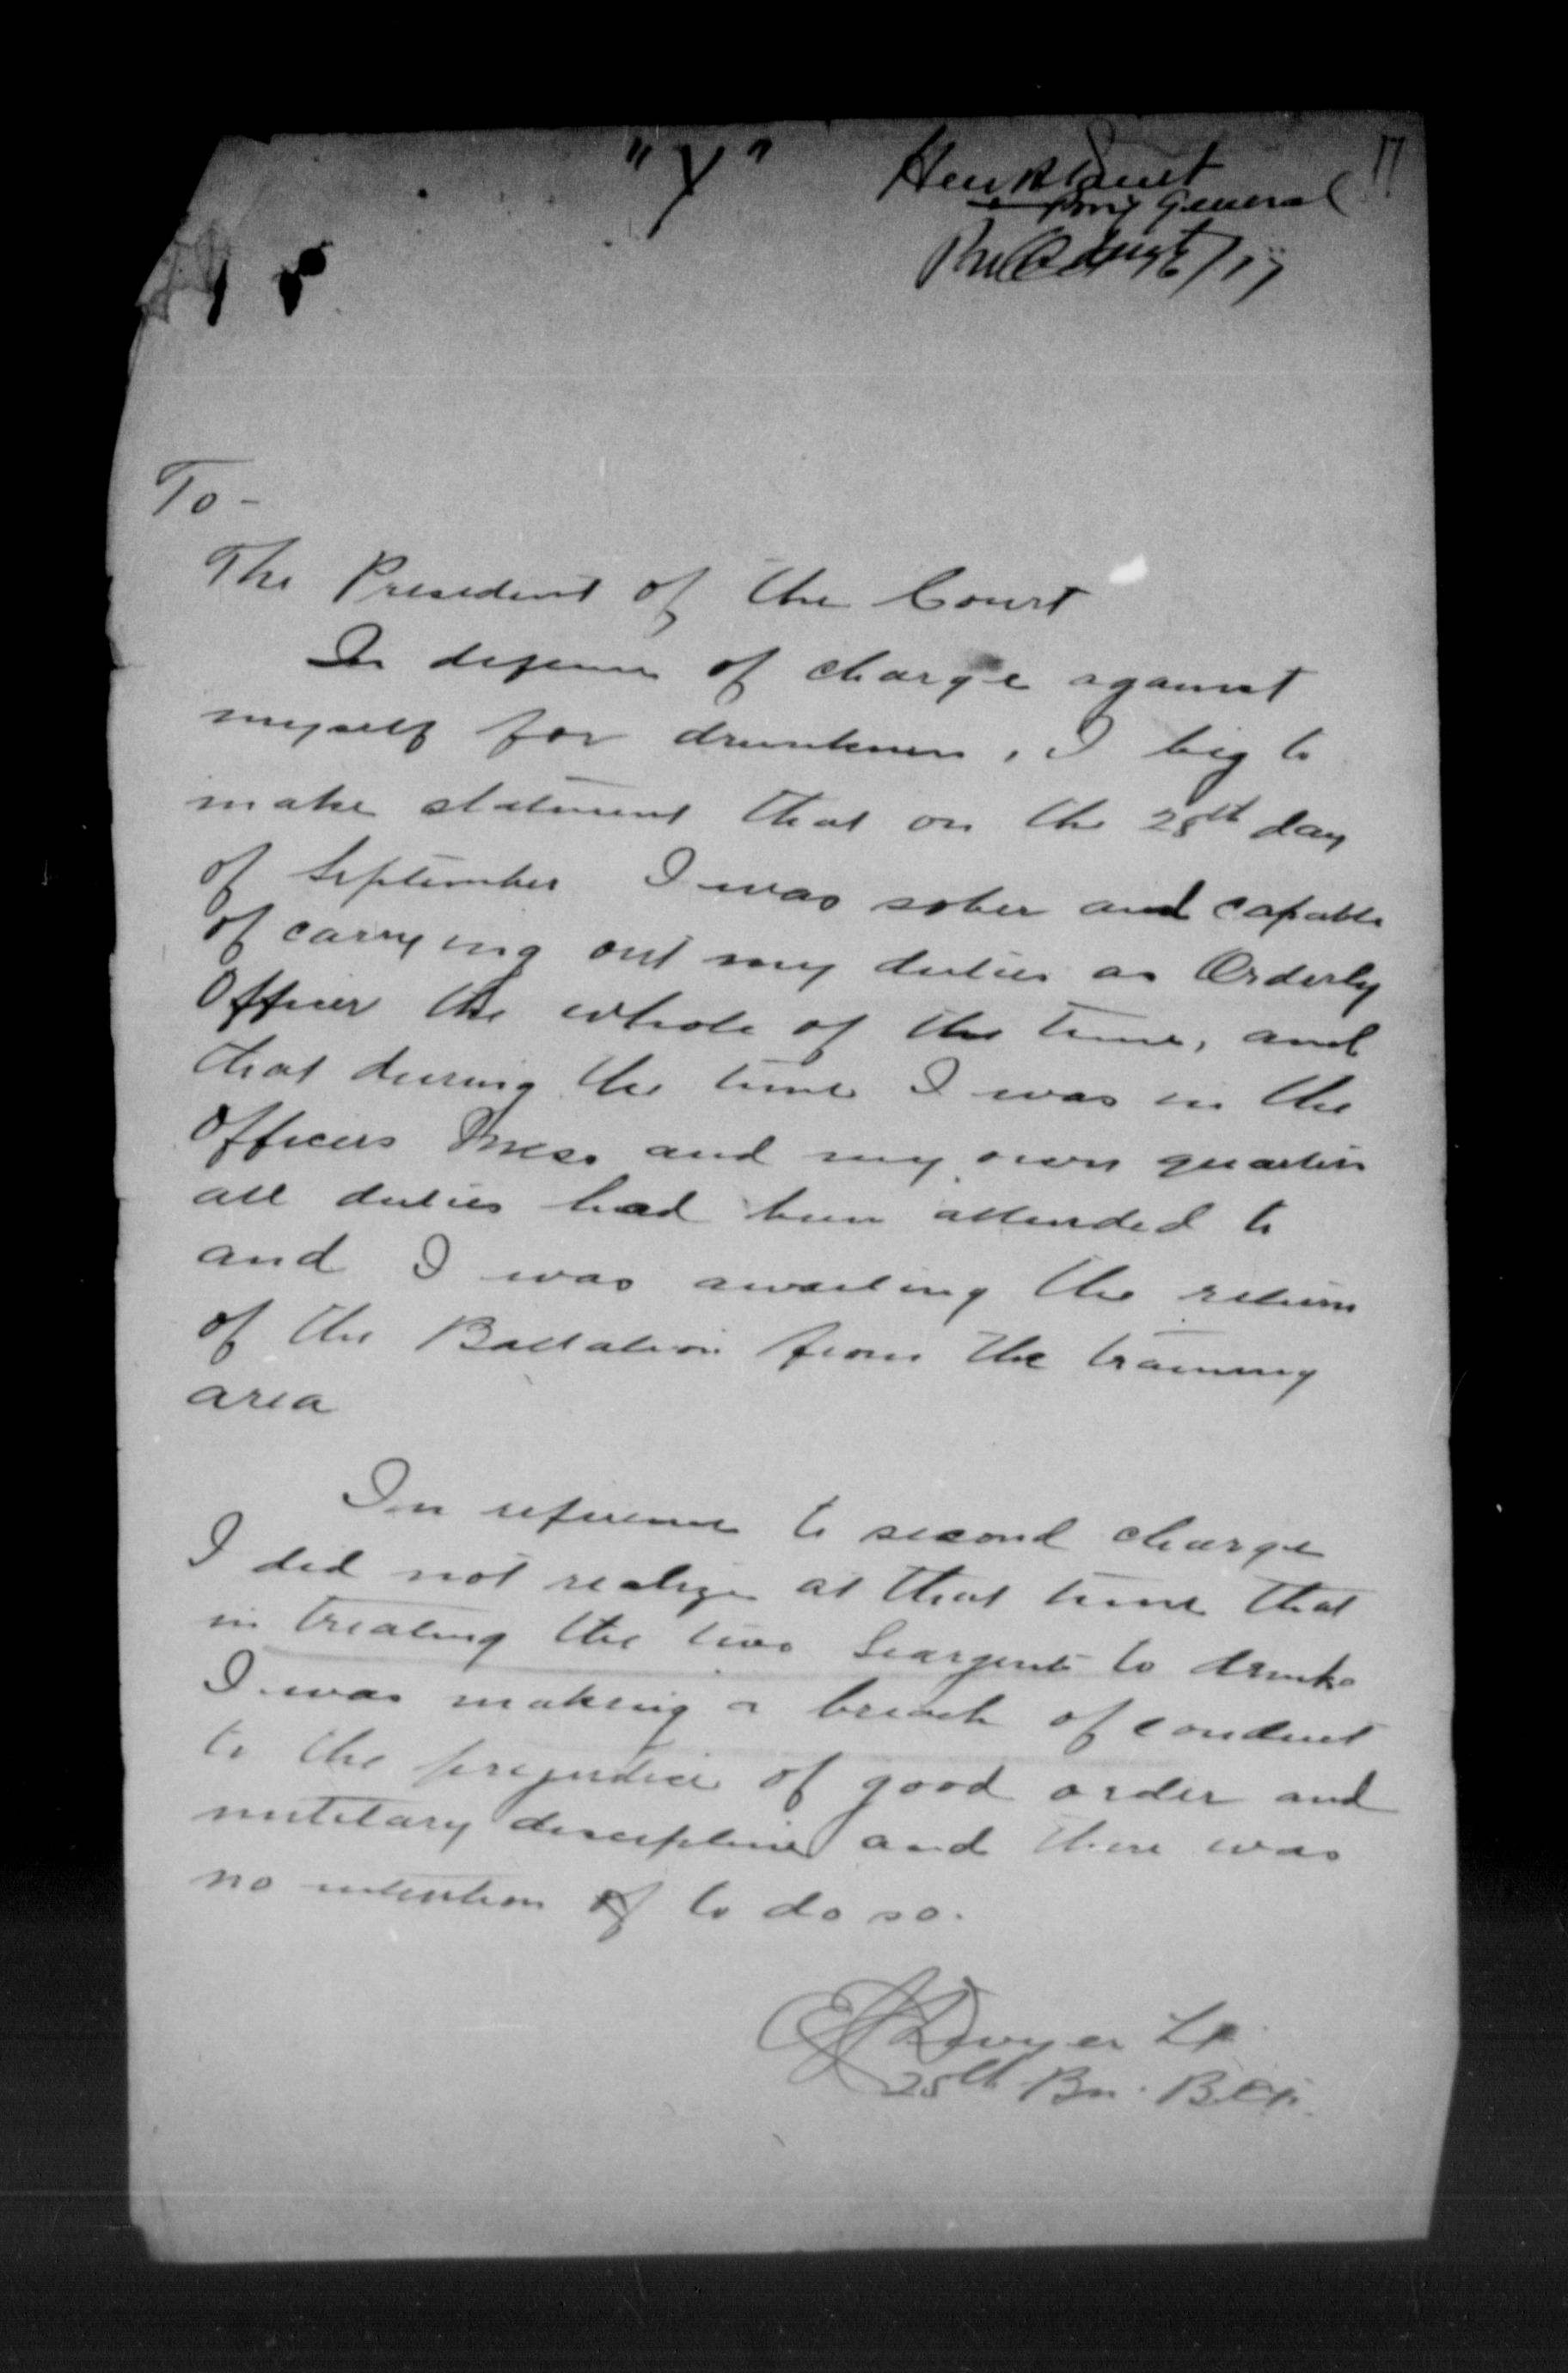 "Y"
17
General
To -
The President of the Court
In defense of charge against
myself for drunkness, I beg to
make statement that on the 28th day
of September I was sober and capable
of carrying out my duties as Orderly
Officer the whole of the time, and
that during the time I was in the
Officers Mess and my own quarters
all duties had been attended to
and I was awaiting the return
of the Battalion from the training
area
In reference to second charge
I did not realize at that time that
in treating the two Seargents to drinks
I was making a breach of conduct
to the prejudice of good order and
military discipline and there was
no intention of to do so.
Dwyer Lt.
25th Bn.